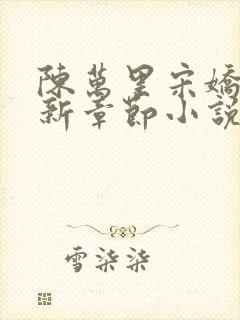 陳萬里宋嬌
新章節小說
雪柒柒